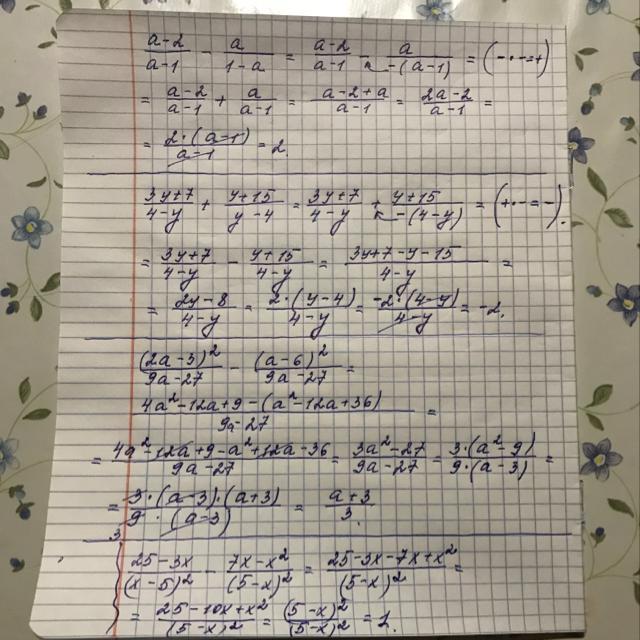 (a-2)/(a-1) - a/(1-a) = (a-2)/(a-1) - a/(-(a-1)) = (- · - = +)
= (a-2)/(a-1) + a/(a-1) = (a-2+a)/(a-1) = (2a-2)/(a-1) =
= 2·(a-1)/(a-1) = 2.
(3y+7)/(4-y) + (y+15)/(y-4) = (3y+7)/(4-y) + (y+15)/(-(4-y)) = (+ · - = -).
= (3y+7)/(4-y) - (y+15)/(4-y) = (3y+7-y-15)/(4-y) =
= (2y-8)/(4-y) = 2·(y-4)/(4-y) = -2·(4-y)/(4-y) = -2.
(2a-3)²/(9a-27) - (a-6)²/(9a-27) =
(4a²-12a+9-(a²-12a+36))/(9a-27) =
= (4a²-12a+9-a²+12a-36)/(9a-27) = (3a²-27)/(9a-27) = 3·(a²-9)/(9·(a-3)) =
= 3·(a-3)·(a+3)/(9·(a-3)) = (a+3)/3.
3
(25-3x)/(x-5)² - (7x-x²)/(5-x)² = (25-3x-7x+x²)/(5-x)² =
= (25-10x+x²)/(5-x)² = (5-x)²/(5-x)² = 1.